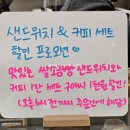 샌드위치 & 커피 세트
할인 프로모션
맛있는 쌀소금빵 샌드위치와
커피 1잔 세트 구매시 1천원 할인!
(오후 4시 전까지 주문건에 해당)